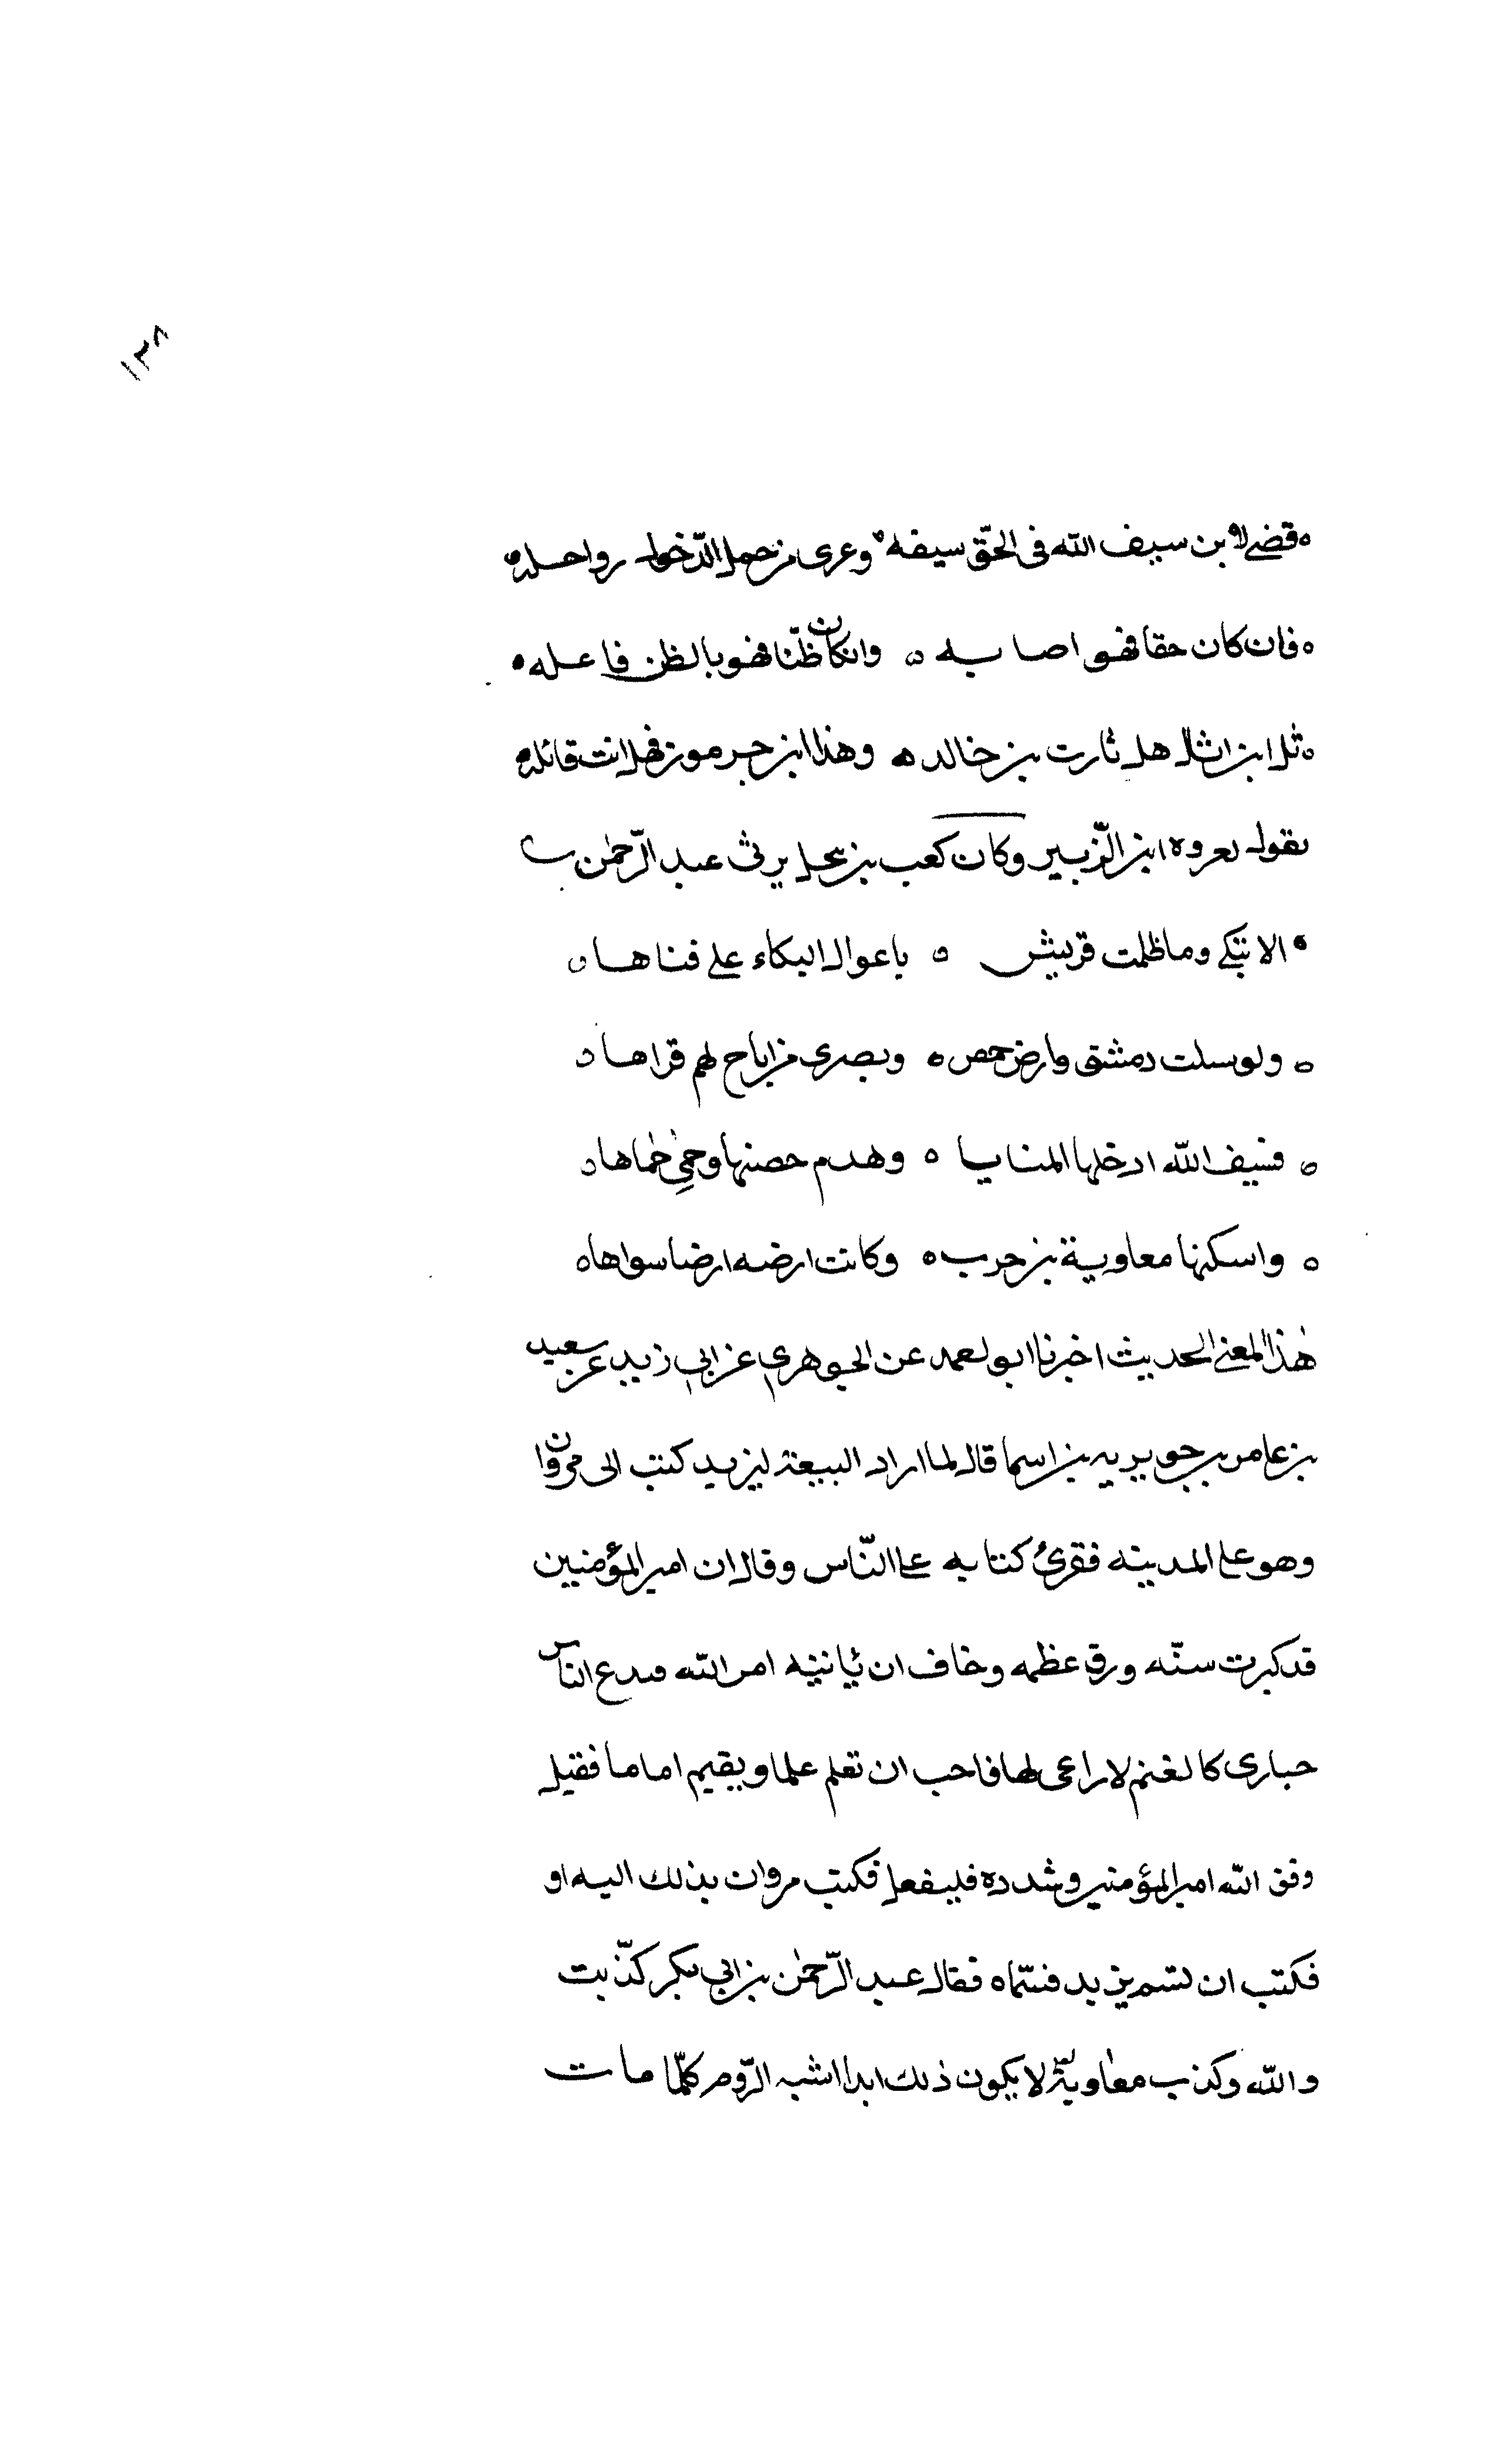 ١٢٨
قضى لابن سيف الله في الحقّ سيفه وعرى من حمل الذّحول رواحله
فان كان حقا فهو اصابه وان كان ظنّا فهو بالظن فاعله
سل ابن اثال هل ثارت بن خالد وهذا ابن جرموز فهل انت قاتله
يقوله لعروه ابن الزّبير وكان كعب بن جعيل يرثى عبد الرّحمٰن
الا تبكى وما ظلمت قريش باعوال البكاء على فتاها
ولو سلت دمشق وارض حمص وبصرى من اباح لهم قراها
فسيف الله ادخلها المنايا وهدم حصنها وحمى حماها
واسكنها معاوية بن حرب وكانت ارضه ارضا سواها
هٰذا لمعنى الحديث اخبرنا ابو احمد عن الجوهرى عن ابى زيد عن سعيد
بن عامر عن جويريه بن اسما قال لما اراد البيعة ليزيد كتب الى مروان
وهو على المدينه فقرئ كتابه على النّاس وقال ان امير المؤمنين
قد كبرت سنّه ورق عظمه وخاف ان ياتيه امر الله فيدع الناس
حيارى كالغنم لا راعى لها فاحب ان تعلم علما ويقيم اماما فقيل
وفق الله امير المؤمنين وشدده فليفعل فكتب مروان بذلك اليه او
فكتب ان تسم يزيد فسمّاه فقال عبد الرّحمٰن بن ابي بكر كذّبت
والله وكذب معاوية لا يكون ذلك ابدا اشبه الرّوم كلّما مات